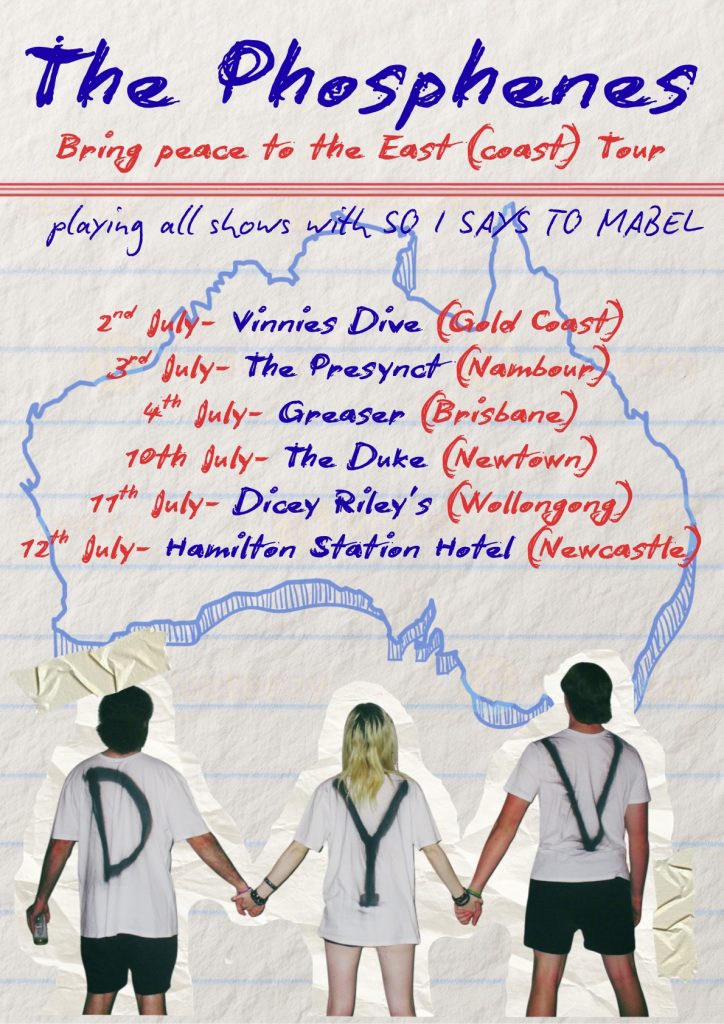 The Phosphenes
Bring peace to the East (coast) Tour
playing all shows with SO I SAYS TO MABEL
2nd July- Vinnies Dive (Gold Coast)
3rd July- The Presynct (Nambour)
4th July- Greaser (Brisbane)
10th July- The Duke (Newtown)
11th July- Dicey Riley's (Wollongong)
12th July- Hamilton Station Hotel (Newcastle)
D Y V